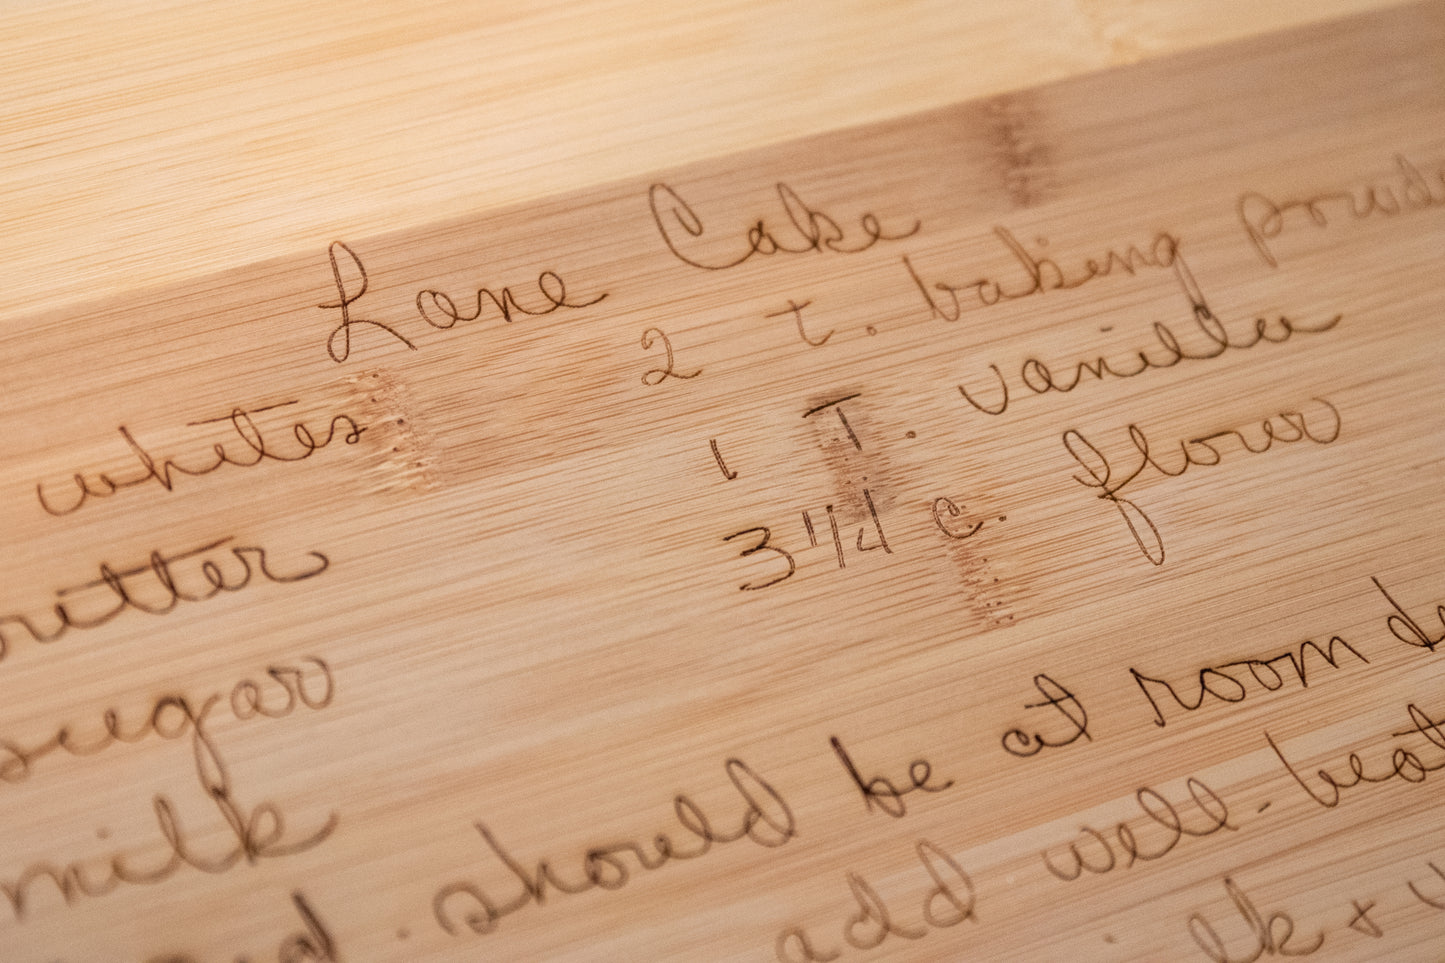 Lane Cake
whites 2 t. baking powde
butter 1 T. vanilla
sugar 3 1/4 c. flour
milk
should be at room
add well-beat